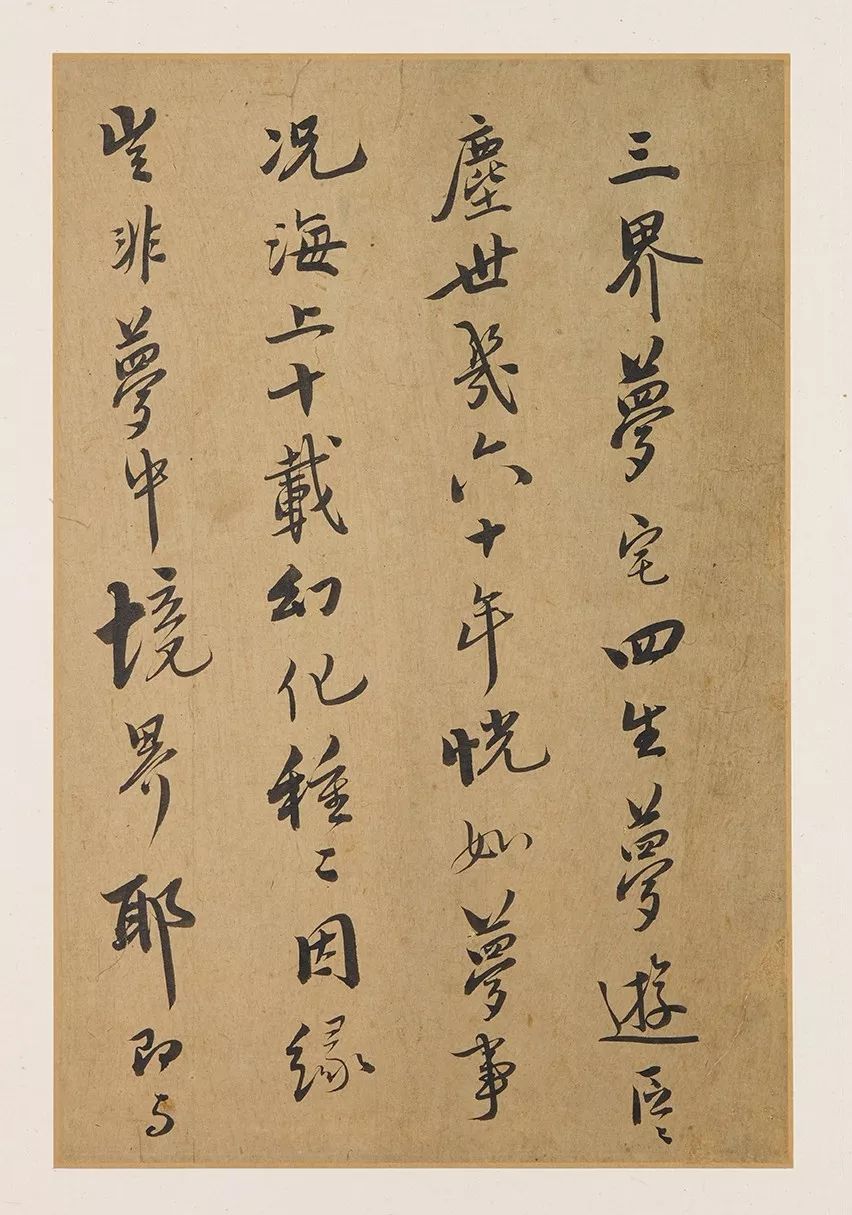 三界夢宅四生夢遊區〻
塵世幾六十年恍如夢事
況海上十載幻化種〻因緣
豈非夢中境界耶即与